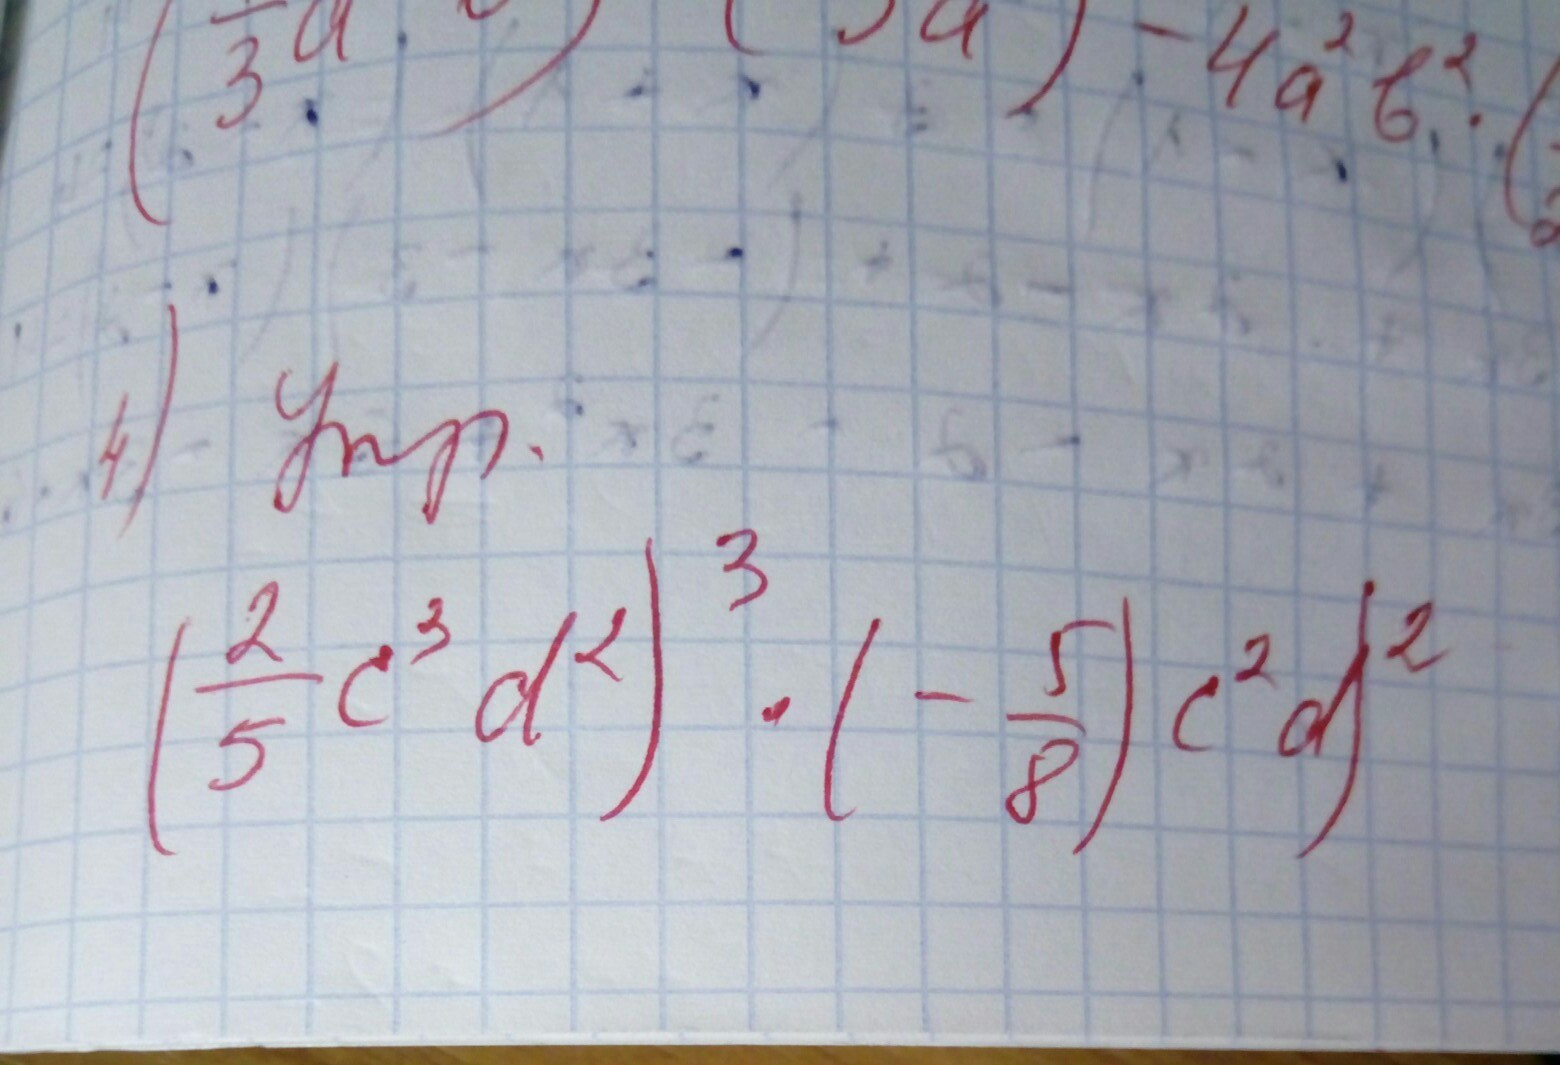 (1/3 a ) ( 3a ) - 4a² b² · (
4) Упр.
(2/5 c³ d²)³ · (- 5/8) c² d)²